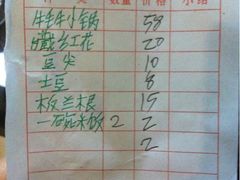 数量 价格 小结
牛牛小锅 59
戴乡红花 20
豆尖 10
土豆 8
板兰根 15
一碗米饭 2 2
2